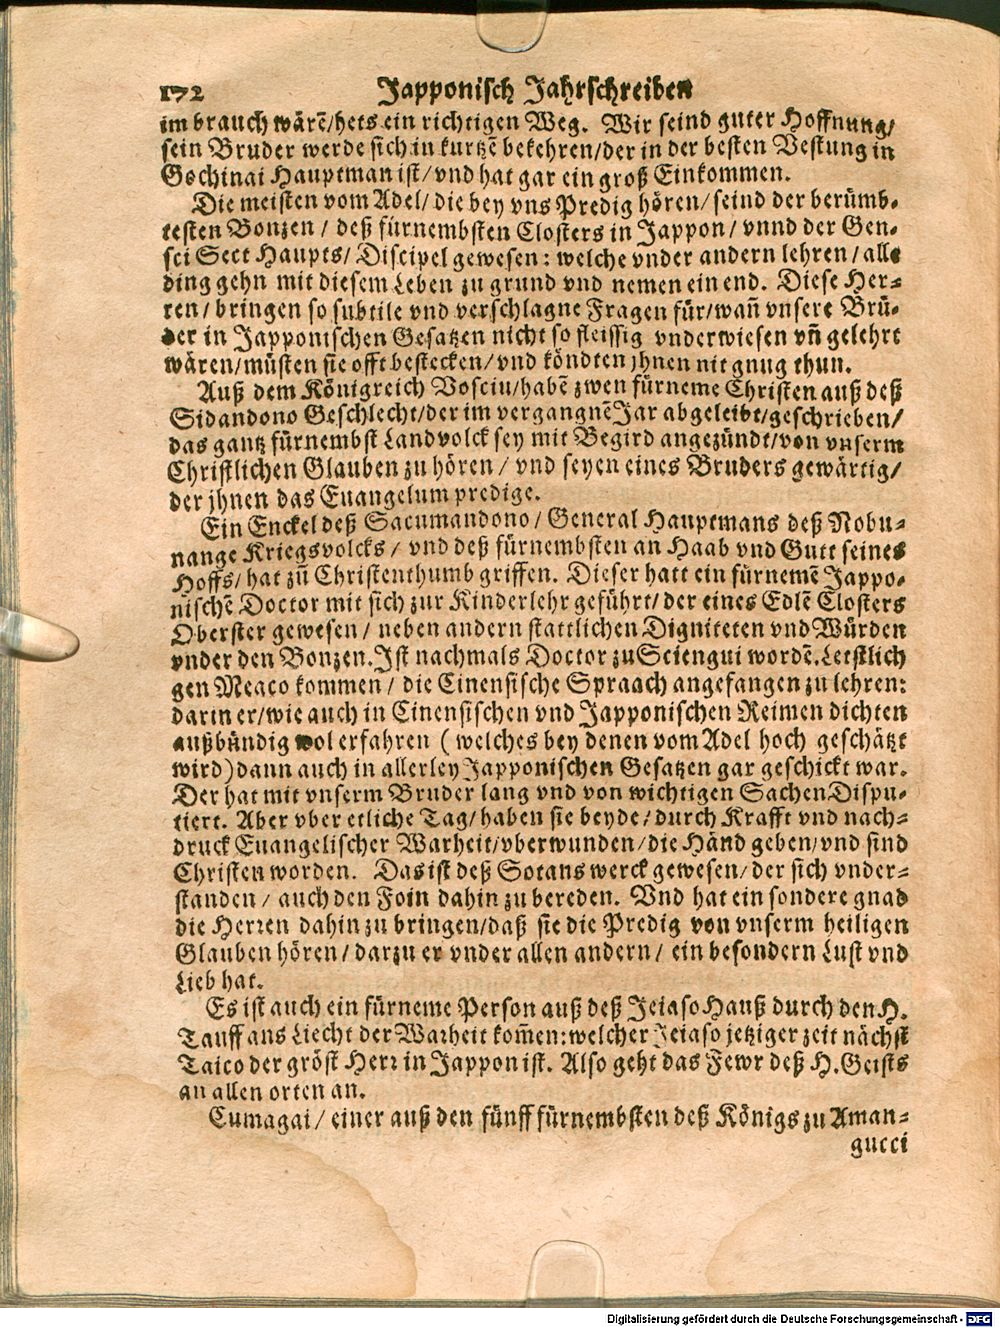 172 Japponisch Jahrschreiben
im brauch wärẽ/hets ein richtigen Weg. Wir seind guter Hoffnung/
sein Bruder werde sich in kurtzẽ bekehren/der in der besten Vestung in
Gochinai Hauptman ist/vnd hat gar ein groß Einkommen.
Die meisten vom Adel/die bey vns Predig hören/seind der berümb-
testen Bonzen/ deß fürnembsten Closters in Jappon/ vnnd der Gen-
sci Sect Haupts/ Discipel gewesen: welche vnder andern lehren/alle
ding gehn mit diesem Leben zu grund vnd nemen ein end. Diese Her-
ren/bringen so subtile vnd verschlagne Fragen für/wañ vnsere Brü-
der in Japponischen Gesatzen nicht so fleissig vnderwiesen vñ gelehrt
wären/müsten sie offt bestecken/vnd köndten jhnen nit gnug thun.
Auß dem Königreich Vosciu/habẽ zwen fürneme Christen auß deß
Sidandono Geschlecht/der im vergangnẽ Jar abgeleibt/geschrieben/
das gantz fürnembst Landvolck sey mit Begird angezündt/von vnserm
Christlichen Glauben zu hören/ vnd seyen eines Bruders gewärtig/
der jhnen das Euangelum predige.
Ein Enckel deß Sacumandono/ General Hauptmans deß Nobu-
nange Kriegsvolcks/ vnd deß fürnembsten an Haab vnd Gutt seines
Hoffs/ hat zũ Christenthumb griffen. Dieser hatt ein fürnemẽ Jappo-
nischẽ Doctor mit sich zur Kinderlehr geführt/der eines Edlẽ Closters
Oberster gewesen/ neben andern stattlichen Digniteten vnd Würden
vnder den Bonzen. Ist nachmals Doctor zu Sciengui wordẽ. Letstlich
gen Meaco kommen/ die Cinensische Spraach angefangen zu lehren:
darin er/wie auch in Cinensischen vnd Japponischen Reimen dichten
außbündig wol erfahren (welches bey denen vom Adel hoch geschätzt
wird) dann auch in allerley Japponischen Gesatzen gar geschickt war.
Der hat mit vnserm Bruder lang vnd von wichtigen Sachen Dispu-
tiert. Aber vber etliche Tag/haben sie beyde/durch Krafft vnd nach-
druck Euangelischer Warheit/vberwunden/die Händ geben/vnd sind
Christen worden. Das ist deß Sotans werck gewesen/der sich vnder-
standen/ auch den Foin dahin zu bereden. Vnd hat ein sondere gnad
die Herren dahin zu bringen/daß sie die Predig von vnserm heiligen
Glauben hören/darzu er vnder allen andern/ ein besondern Lust vnd
Lieb hat.
Es ist auch ein fürneme Person auß deß Jeiaso Hauß durch den H.
Tauff ans Liecht der Warheit kom̃en: welcher Jeiaso jetziger zeit nächst
Taico der gröst Herr in Jappon ist. Also geht das Fewr deß H. Geists
an allen orten an.
Cumagai/ einer auß den fünff fürnembsten deß Königs zu Aman-
gucci
Digitalisierung gefördert durch die Deutsche Forschungsgemeinschaft - DFG